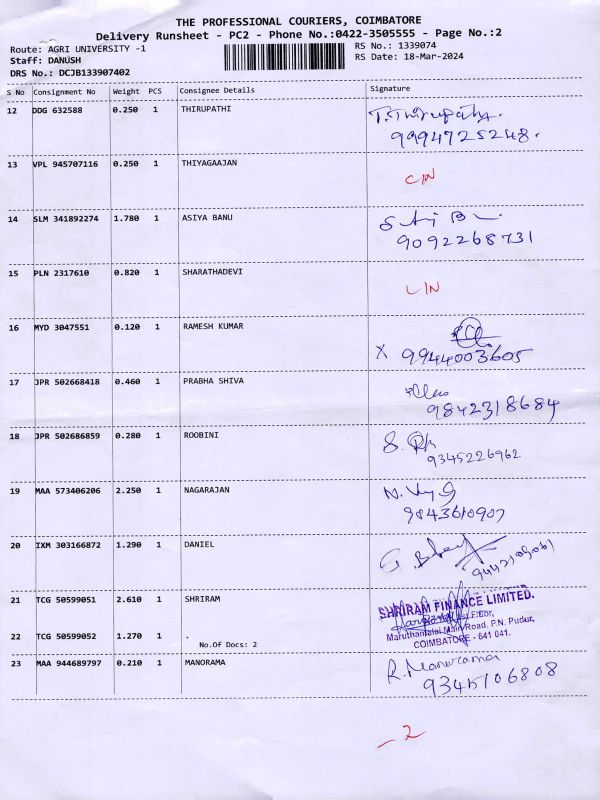 THE PROFESSIONAL COURIERS, COIMBATORE
Delivery Runsheet - PC2 - Phone No.:0422-3505555 - Page No.:2
Route: AGRI UNIVERSITY -1
RS No.: 1339074
Staff: DANUSH
RS Date: 18-Mar-2024
DRS No.: DCJB133907402
S No Consignment No Weight PCS Consignee Details Signature
12 DDG 632588 0.250 1 THIRUPATHI T.Thirupathy.
9994725248.
13 VPL 945707116 0.250 1 THIYAGAAJAN
C/N
14 SLM 341892274 1.780 1 ASIYA BANU
9092268731
15 PLN 2317610 0.820 1 SHARATHADEVI
L/N
16 MYD 3047551 0.120 1 RAMESH KUMAR
X 9944003605
17 JPR 502668418 0.460 1 PRABHA SHIVA
9842318684
18 JPR 502686859 0.280 1 ROOBINI
9345226962
19 MAA 573406206 2.250 1 NAGARAJAN
9843610907
20 IXM 303166872 1.290 1 DANIEL
21 TCG 50599051 2.610 1 SHRIRAM
SHRIRAM FINANCE LIMITED.
Floor,
Maruthamalai Main Road, P.N. Pudur,
COIMBATORE - 641 041.
22 TCG 50599052 1.270 1 .
No.Of Docs: 2
23 MAA 944689797 0.210 1 MANORAMA R.Manorama
9345106808
-2